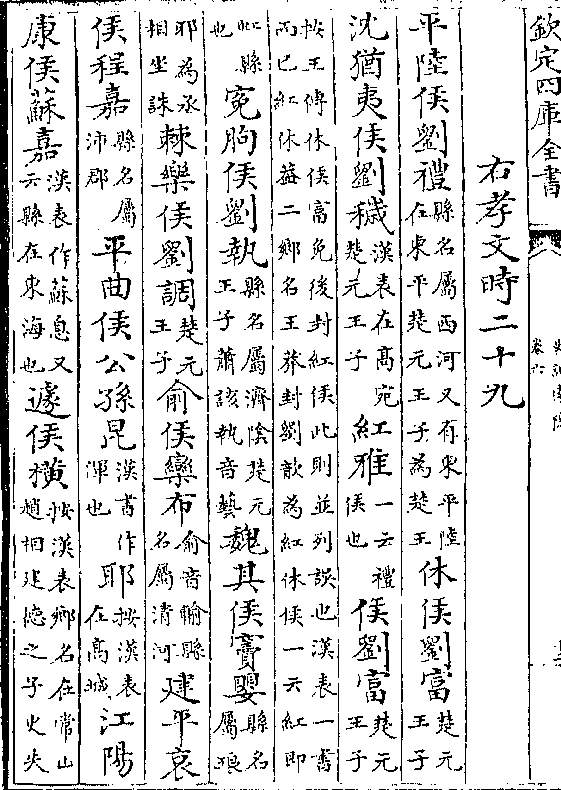 欽定四庫全書
史記索隱
卷六
右孝文時二十九
平陸侯劉禮縣名屬西河又有東平陸在東平楚元王子為楚王休侯劉富楚元王子
沈猶夷侯劉穢漢表在高宛楚元王子紅雅一云禮侯也侯劉富楚元王子
按王傳休侯富免後封紅侯此則並列誤也漢表一書而已紅休葢二鄉名王莽封劉歆為紅休侯一云紅即
虹縣也宛朐侯劉執縣名屬濟陰楚元王子蕭該執音藝魏其侯竇嬰縣名屬琅
耶為丞相坐誅棘樂侯劉調楚元王子俞侯欒布俞音輸縣名屬清河建平哀
侯程嘉縣名屬沛郡平曲侯公孫昆漢書作渾也耶按漢表在高城江陽
康侯蘇嘉漢表作蘇息又云縣在東海也遽侯横按漢表鄉名在常山趙相建德之子史失